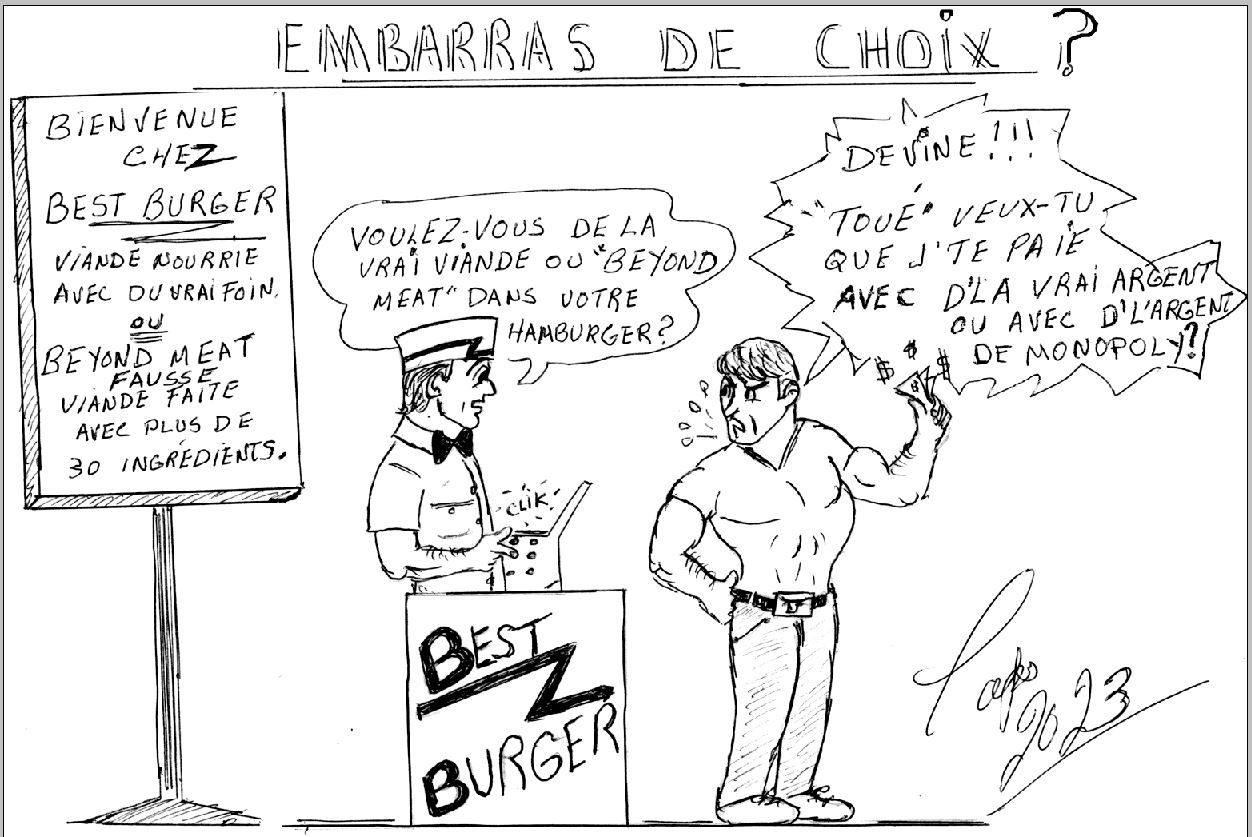 EMBARRAS DE CHOIX ?
BIENVENUE
CHEZ
BEST BURGER
VIANDE NOURRIE
AVEC DU VRAI FOIN.
OU
BEYOND MEAT
FAUSSE
VIANDE FAITE
AVEC PLUS DE
30 INGRÉDIENTS.
VOULEZ-VOUS DE LA
VRAI VIANDE OU "BEYOND
MEAT" DANS VOTRE
HAMBURGER?
DEVINE!!!
"TOUÉ" VEUX-TU
QUE J'TE PAIE
AVEC D'LA VRAI ARGENT
OU AVEC D'L'ARGENT
DE MONOPOLY!?
$ $ $
CLIK!
BEST
BURGER
2023